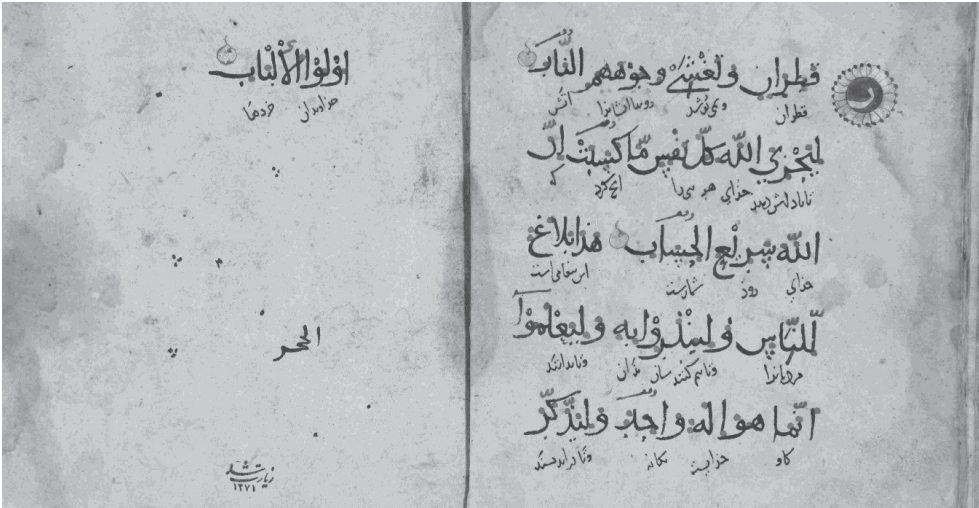 قَطِرانٍ وَتَغْشىٰ وُجوهَهم النَّار
قطران ومی پوشد رویهاشانرا آتش
لِيَجْزِيَ اللّٰه كلَّ نَفْسٍ مَّا كَسَبَتْ اِنَّ
تا پاداش دهد خدای هر تنی را آنچ کرد که
اللّٰه سَرِيْعُ الْحِسَابِ هٰذَا بَلاغٌ
خدای زود شمارست این پیغامی است
لِّلنَّاسِ وَلِيُنْذَرُوْا بِهِ وَلِيَعْلَمُوْا
مردمانرا وتا بیم کنندشان بدان وتا بدانند
اَنَّما هُوَ اِلٰهٌ وَاحِدٌ وَلِيَذَّكَّرَ
کاو خدایست یگانه
اُولُوا الْاَلْبَاب
خداوندان خردها
الحجر
زیارت شد
۱۳۷۱